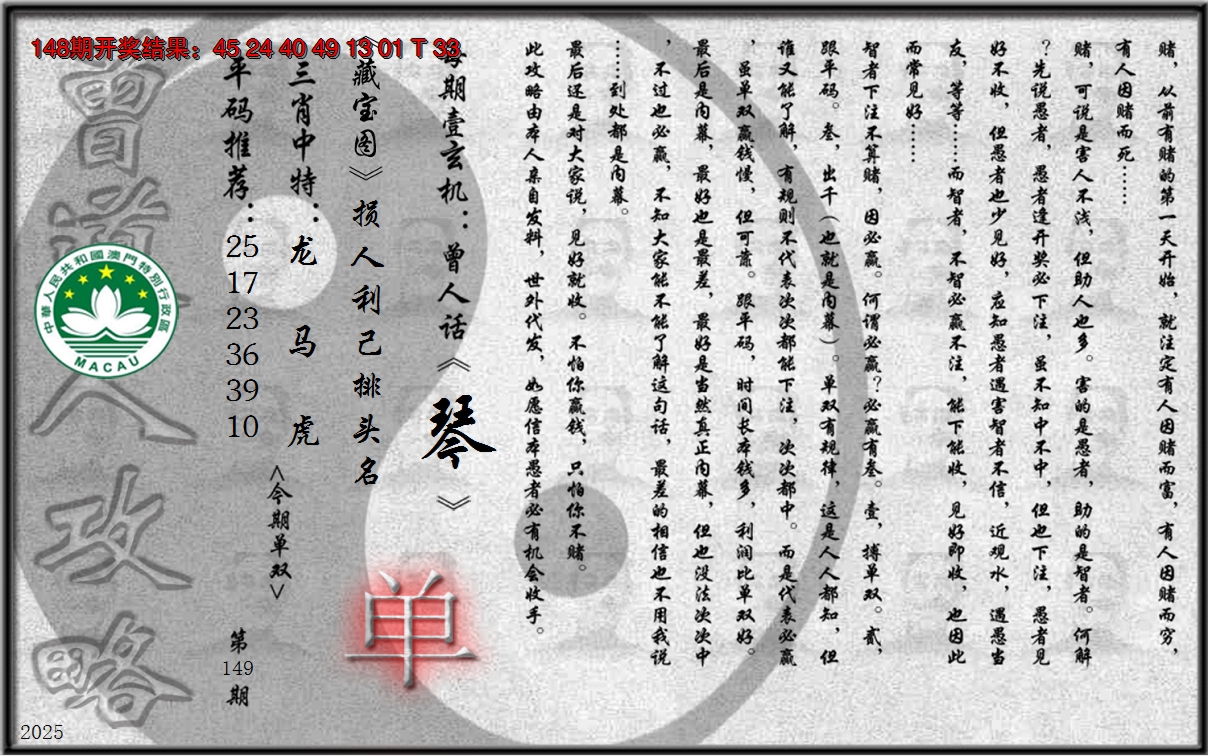 148期开奖结果：45 24 40 49 13 01 T 33
赌，从前有赌的第一天开始，就注定有人因赌而富，有人因赌而穷，
有人因赌而死……
赌，可说是害人不浅，但助人也多。害的是愚者，助的是智者。何解
？先说愚者，愚者逢开奖必下注，虽不知中不中，但也下注，愚者见
好不收，但愚者也少见好，应知愚者遇害智者不信，近观水，遇愚当
友，等等……而智者，不智必赢不注，能下能收，见好即收，也因此
而常见好……
智者下注不算赌，因必赢。何谓必赢？必赢有叁。壹，搏单双。贰，
跟平码。叁，出千（也就是内幕）。单双有规律，这是人人都知，但
谁又能了解，有规则不代表次次都能下注，次次都中。而是代表必赢
，虽单双赢钱慢，但可靠。跟平码，时间长本钱多，利润比单双好。
最后是内幕，最好也是最差，最好是当然真正内幕，但也没法次次中
，不过也必赢，不知大家能不能了解这句话，最差的相信也不用我说
……到处都是内幕。
最后还是对大家说，见好就收。不怕你赢钱，只怕你不赌。
此攻略由本人亲自发料，世外代发，如愿信本愚者必有机会收手。
每期壹玄机：曾人话《琴》
《藏宝图》损人利己排头名
单
三肖中特：龙 马 虎
<今期单双>
平码推荐：25 17 23 36 39 10
第149期
曾道人攻略
中華人民共和國澳門特別行政區
MACAU
2025